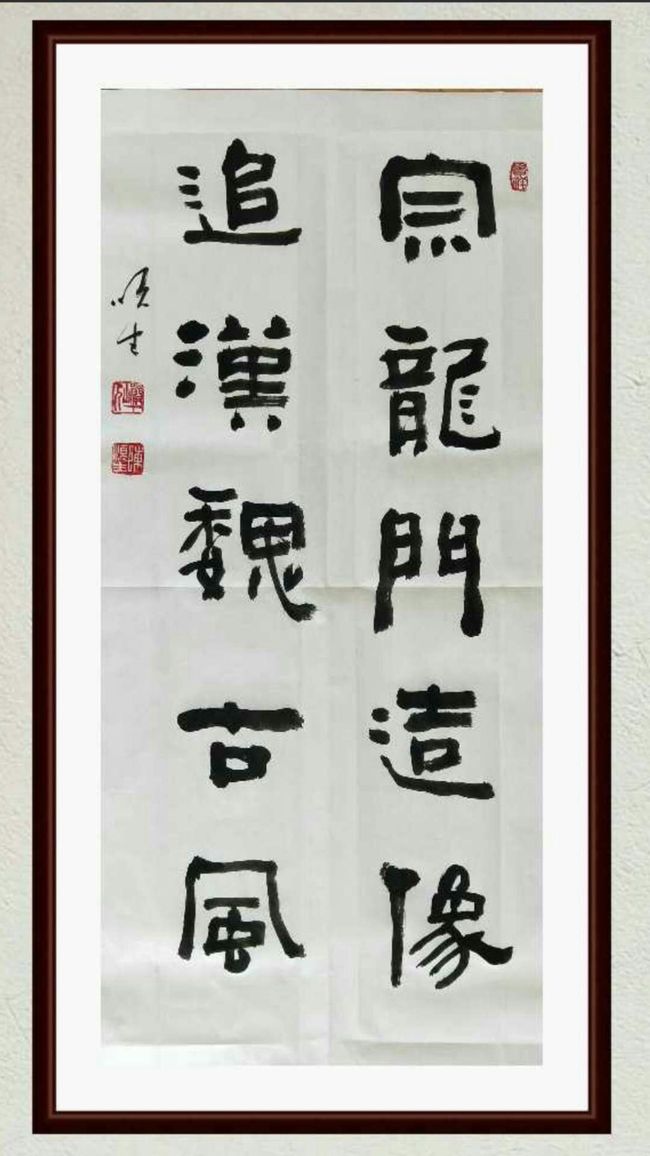 宗龍門造像
追漢魏古風
順生